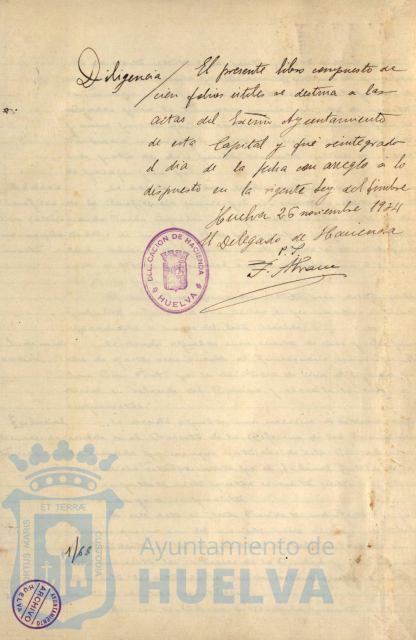 Diligencia / El presente libro compuesto de
cien folios útiles se destina a las
actas del Excmo Ayuntamiento
de esta Capital y fué reintegrado
el dia de la fecha con arreglo á lo
dispuesto en la vigente Ley del timbre
Huelva 26 noviembre 1924
El Delegado de Hacienda
P. I.
F.
DELEGACION DE HACIENDA
HUELVA
ET TERRÆ
PORTUS MARIS
CUSTODIA
1/68
Ayuntamiento de
HUELVA
AYUNTAMIENTO
ARCHIVO
HUELVA